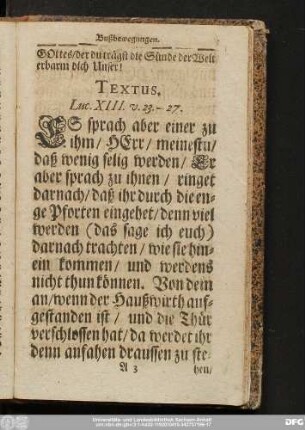 Bußbewegungen.
GOttes/der du trägst die Sünde der Welt
erbarm dich Unser!
TEXTUS.
Luc. XIII. v. 23. - 27.
ES sprach aber einer zu
ihm/ HErr/ meinestu/
daß wenig selig werden/ Er
aber sprach zu ihnen/ ringet
darnach/ daß ihr durch die en-
ge Pforten eingehet/ denn viel
werden (das sage ich euch)
darnach trachten/ wie sie hin-
ein kommen/ und werdens
nicht thun können. Von dem
an/ wenn der Haußwirth auf-
gestanden ist/ und die Thür
verschlossen hat/ da werdet ihr
denn anfahen draussen zu ste-
A 3 hen/
Universitäts- und Landesbibliothek Sachsen-Anhalt
DFG